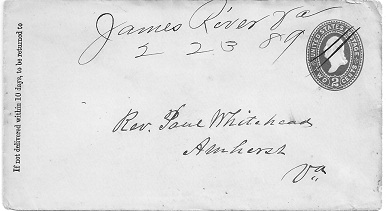 James River Va
2 23 89
UNITED STATES POSTAGE
TWO 2 CENTS
If not delivered within 10 days, to be returned to
Rev. Paul Whitehead
Amherst
Va